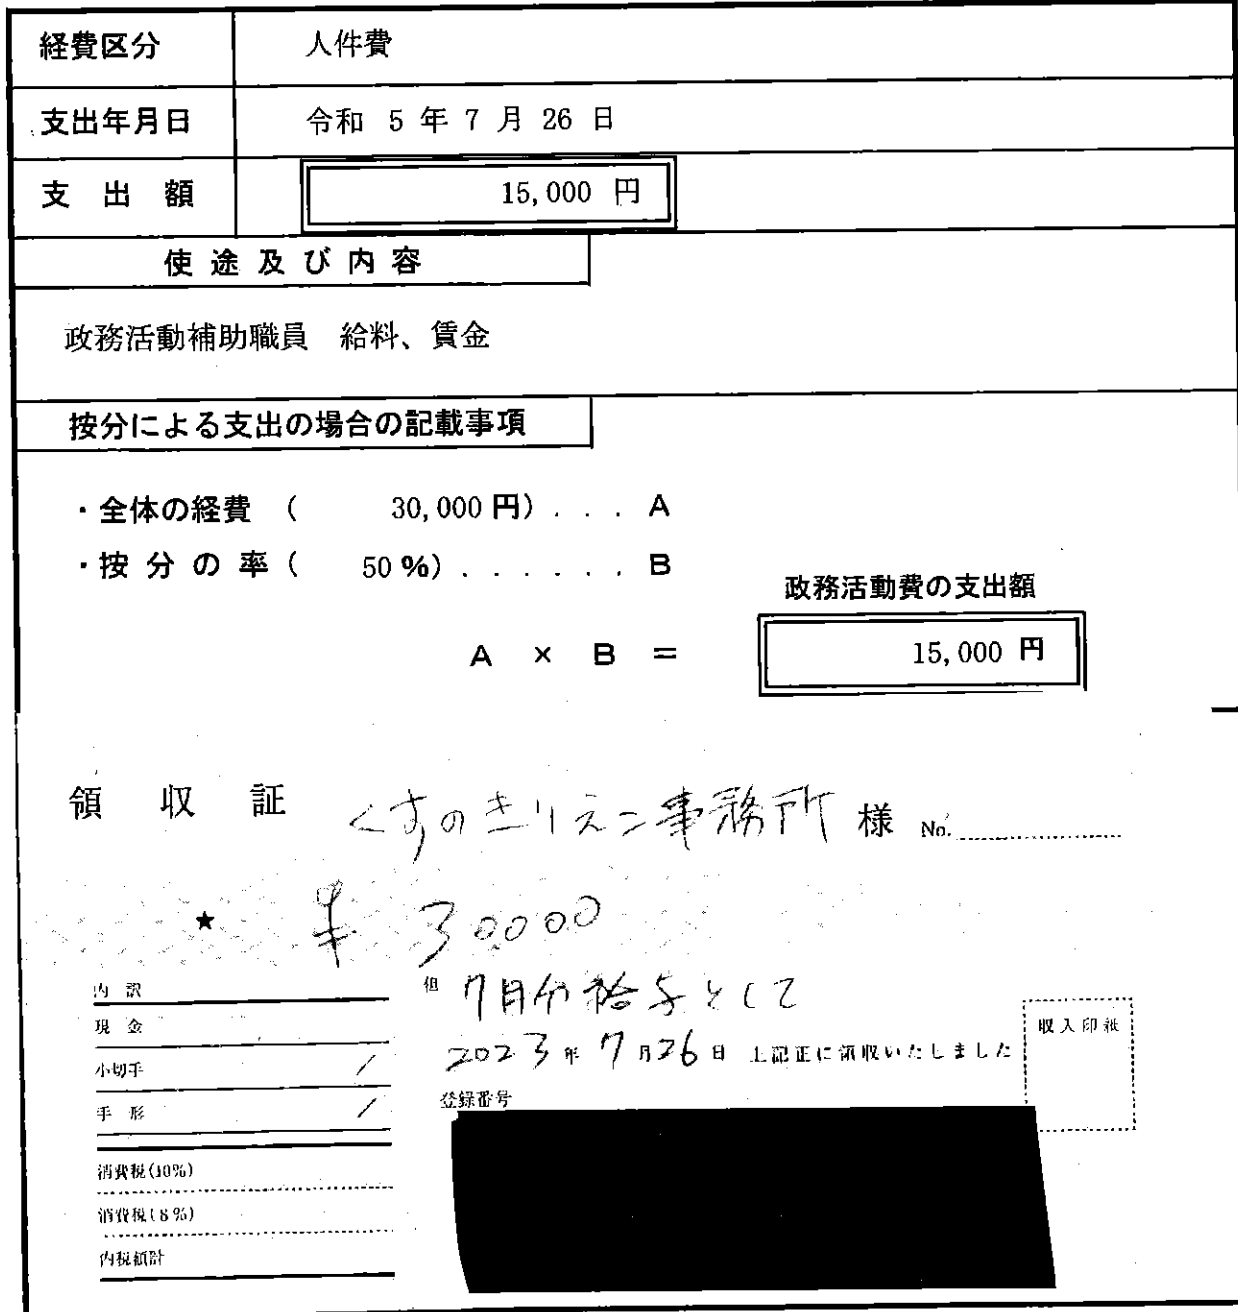 経費区分 人件費
支出年月日 令和 5 年 7 月 26 日
支 出 額 15,000 円
使 途 及 び 内 容
政務活動補助職員 給料、賃金
按分による支出の場合の記載事項
・全体の経費 ( 30,000 円) . . . A
・按 分 の 率 ( 50 %) . . . . . . . B
政務活動費の支出額
A × B = 15,000 円
領 収 証 くすのきりえこ事務所 様 No.
★ ¥ 30000
内 訳
但 7月分給与として
現 金
収入印紙
2023年 7月26日 上記正に領収いたしました
小切手 /
登録番号
手 形 /
消費税(10%)
消費税(8%)
内税額計